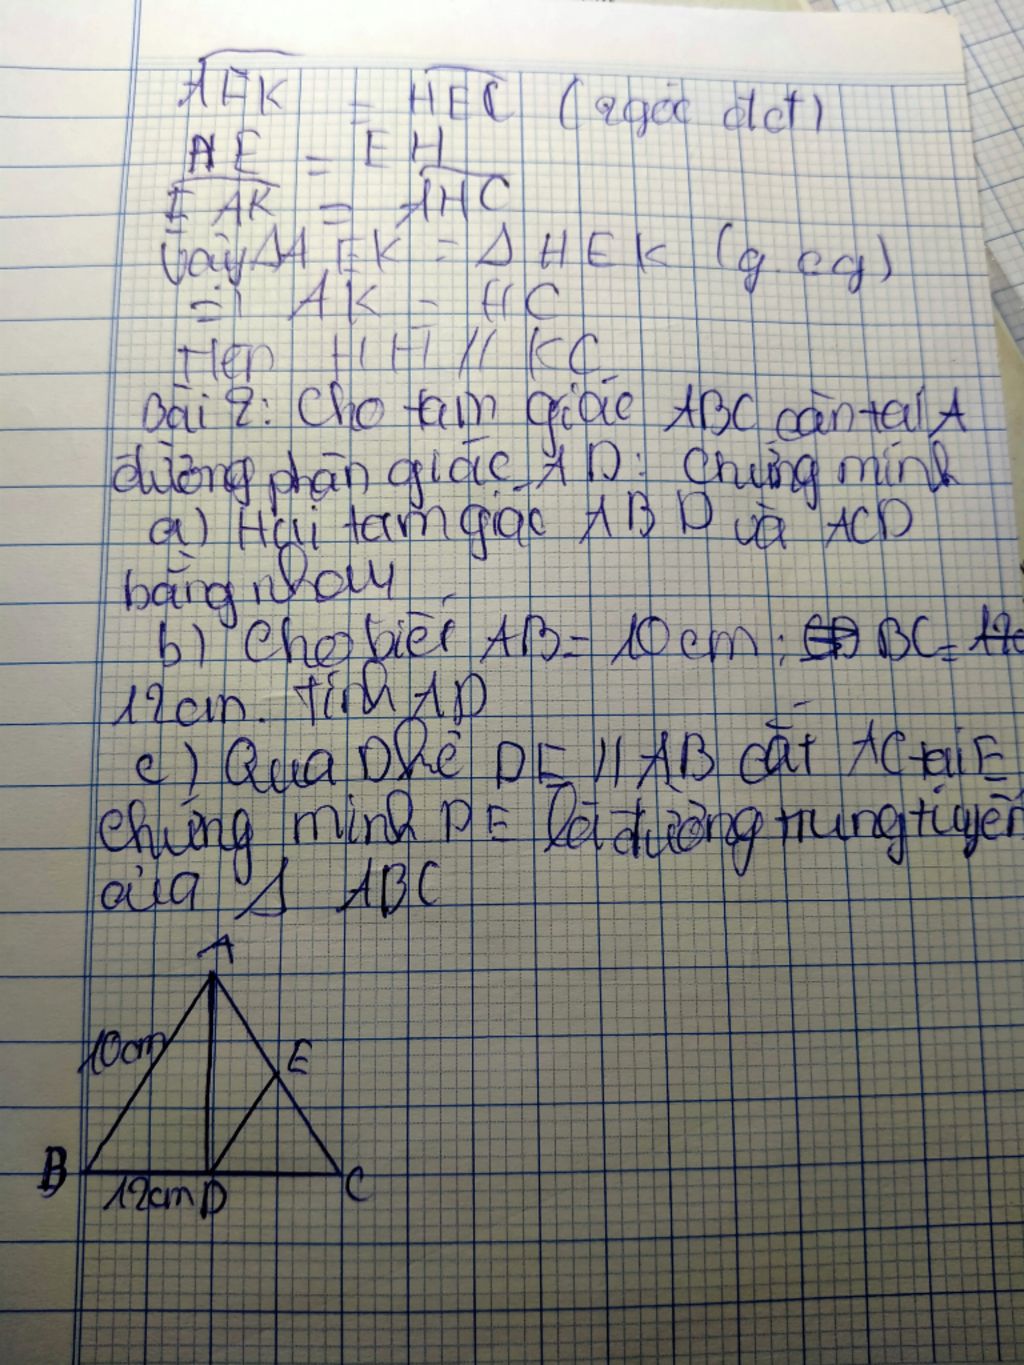 AEK = HEC (2góc đđ)
AE = EH
EAK = AHC
Vậy ΔAEK = ΔHEK (g.c.g)
=> AK = HC
Nên HH // KC
Bài 2: Cho tam giác ABC cân tại A
đường phân giác AD: Chứng minh
a) Hai tam giác ABD và ACD
bằng nhau
b) Cho biết AB = 10cm; BC = 12c
12cm. Tính AD
c) Qua D kẻ DE // AB cắt AC tại E
chứng minh DE là đường trung tuyến
của Δ ABC
A
10cm
E
B
12cm D
C